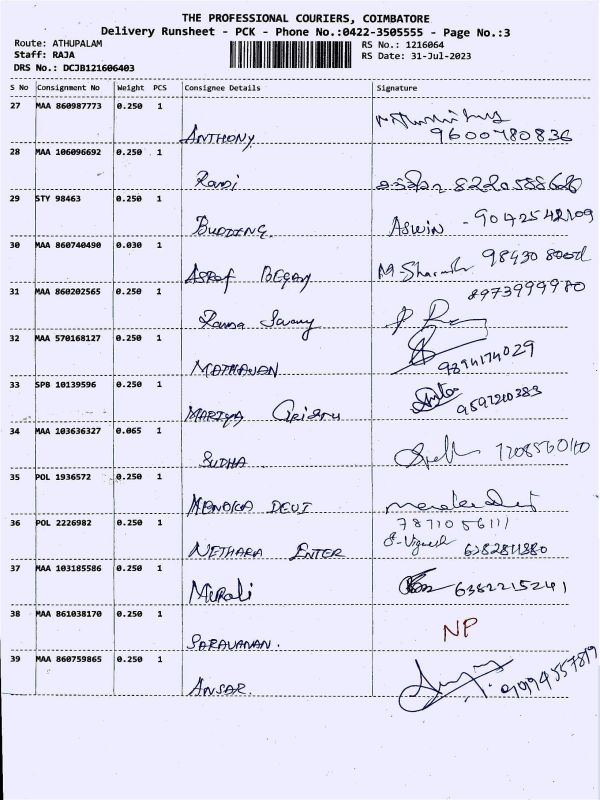 THE PROFESSIONAL COURIERS, COIMBATORE
Delivery Runsheet - PCK - Phone No.:0422-3505555 - Page No.:3
Route: ATHUPALAM RS No.: 1216064
Staff: RAJA RS Date: 31-Jul-2023
DRS No.: DCJB121606403
S No Consignment No Weight PCS Consignee Details Signature
27 MAA 860987773 0.250 1
ANTHONY 9600780836
28 MAA 106096692 0.250 1
Ravi 8220588626
29 STY 98463 0.250 1
ASWIN - 9042542109
30 MAA 860740490 0.030 1
ASRAF BEGAM 98430
31 MAA 860202565 0.250 1
8973999980
32 MAA 570168127 0.250 1
MATHAVAN 9894174029
33 SPB 10139596 0.250 1
9597210383
34 MAA 103636327 0.065 1
SUDHA
35 POL 1936572 0.250 1
MENOKA DEVI
36 POL 2226982 0.250 1 7871056111
NETHARA ENTER 6382811880
37 MAA 103185586 0.250 1
Murali 6382215241
38 MAA 861038170 0.250 1
SARAVANAN. NP
39 MAA 860759865 0.250 1
ANSAR.